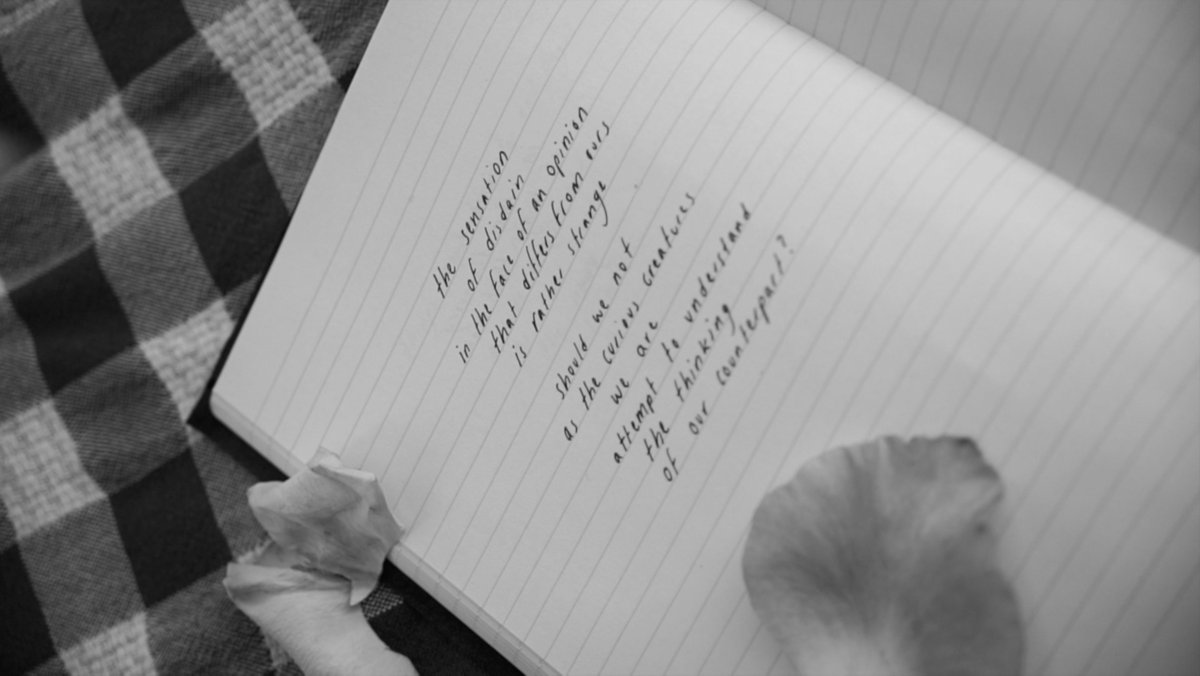 the sensation
of disdain
in the face of an opinion
that differs from ours
is rather strange
should we not
as the curious creatures
we are
attempt to understand
the thinking
of our counterpart?